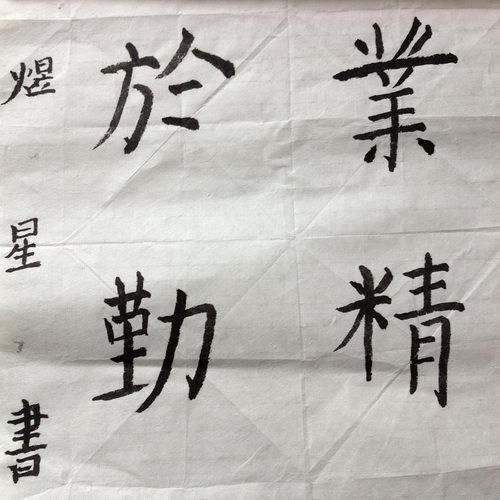 業精
於勤
煜星書